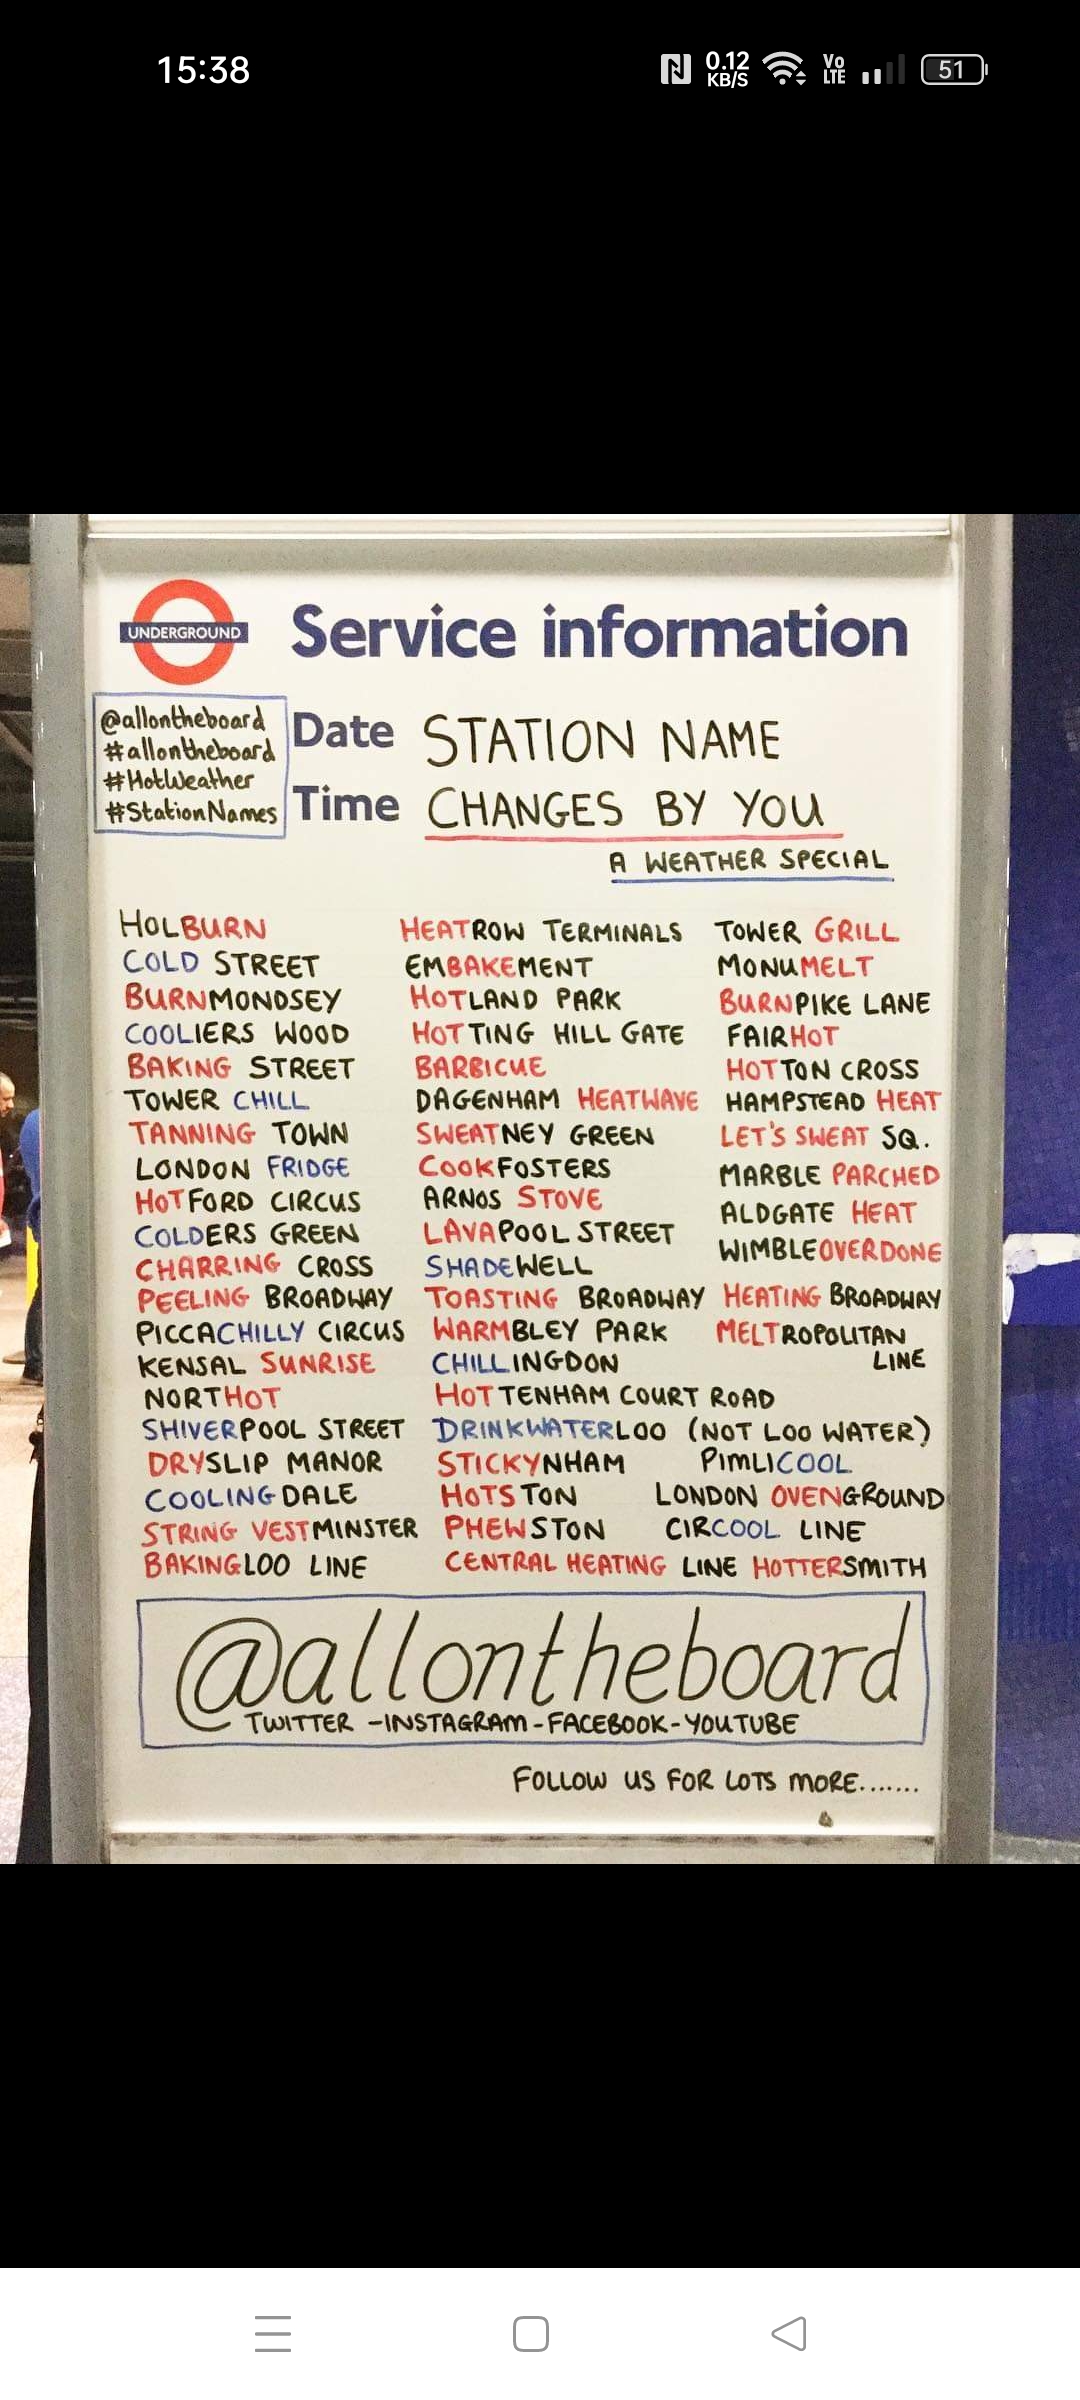 15:38
0.12 KB/S
Vo LTE
51
UNDERGROUND
Service information
@allontheboard
#allontheboard
#HotWeather
#StationNames
Date STATION NAME
Time CHANGES BY YOU
A WEATHER SPECIAL
HOLBURN
COLD STREET
BURNMONDSEY
COOLIERS WOOD
BAKING STREET
TOWER CHILL
TANNING TOWN
LONDON FRIDGE
HOTFORD CIRCUS
COLDERS GREEN
CHARRING CROSS
PEELING BROADWAY
PICCACHILLY CIRCUS
KENSAL SUNRISE
NORTHOT
SHIVERPOOL STREET
DRYSLIP MANOR
COOLINGDALE
STRING VESTMINSTER
BAKINGLOO LINE
HEATROW TERMINALS
EMBAKEMENT
HOTLAND PARK
HOTTING HILL GATE
BARBICUE
DAGENHAM HEATWAVE
SWEATNEY GREEN
COOKFOSTERS
ARNOS STOVE
LAVAPOOL STREET
SHADEWELL
TOASTING BROADWAY
WARMBLEY PARK
CHILLINGDON
HOTTENHAM COURT ROAD
DRINKWATERLOO (NOT LOO WATER)
STICKYNHAM
HOTSTON
PHEWSTON
CENTRAL HEATING LINE
TOWER GRILL
MONUMELT
BURNPIKE LANE
FAIRHOT
HOTTON CROSS
HAMPSTEAD HEAT
LET'S SWEAT SQ.
MARBLE PARCHED
ALDGATE HEAT
WIMBLEOVERDONE
HEATING BROADWAY
MELTROPOLITAN
LINE
PIMLICOOL
LONDON OVENGROUND
CIRCOOL LINE
HOTTERSMITH
@allontheboard
TWITTER -INSTAGRAM-FACEBOOK-YOUTUBE
FOLLOW US FOR LOTS MORE.......